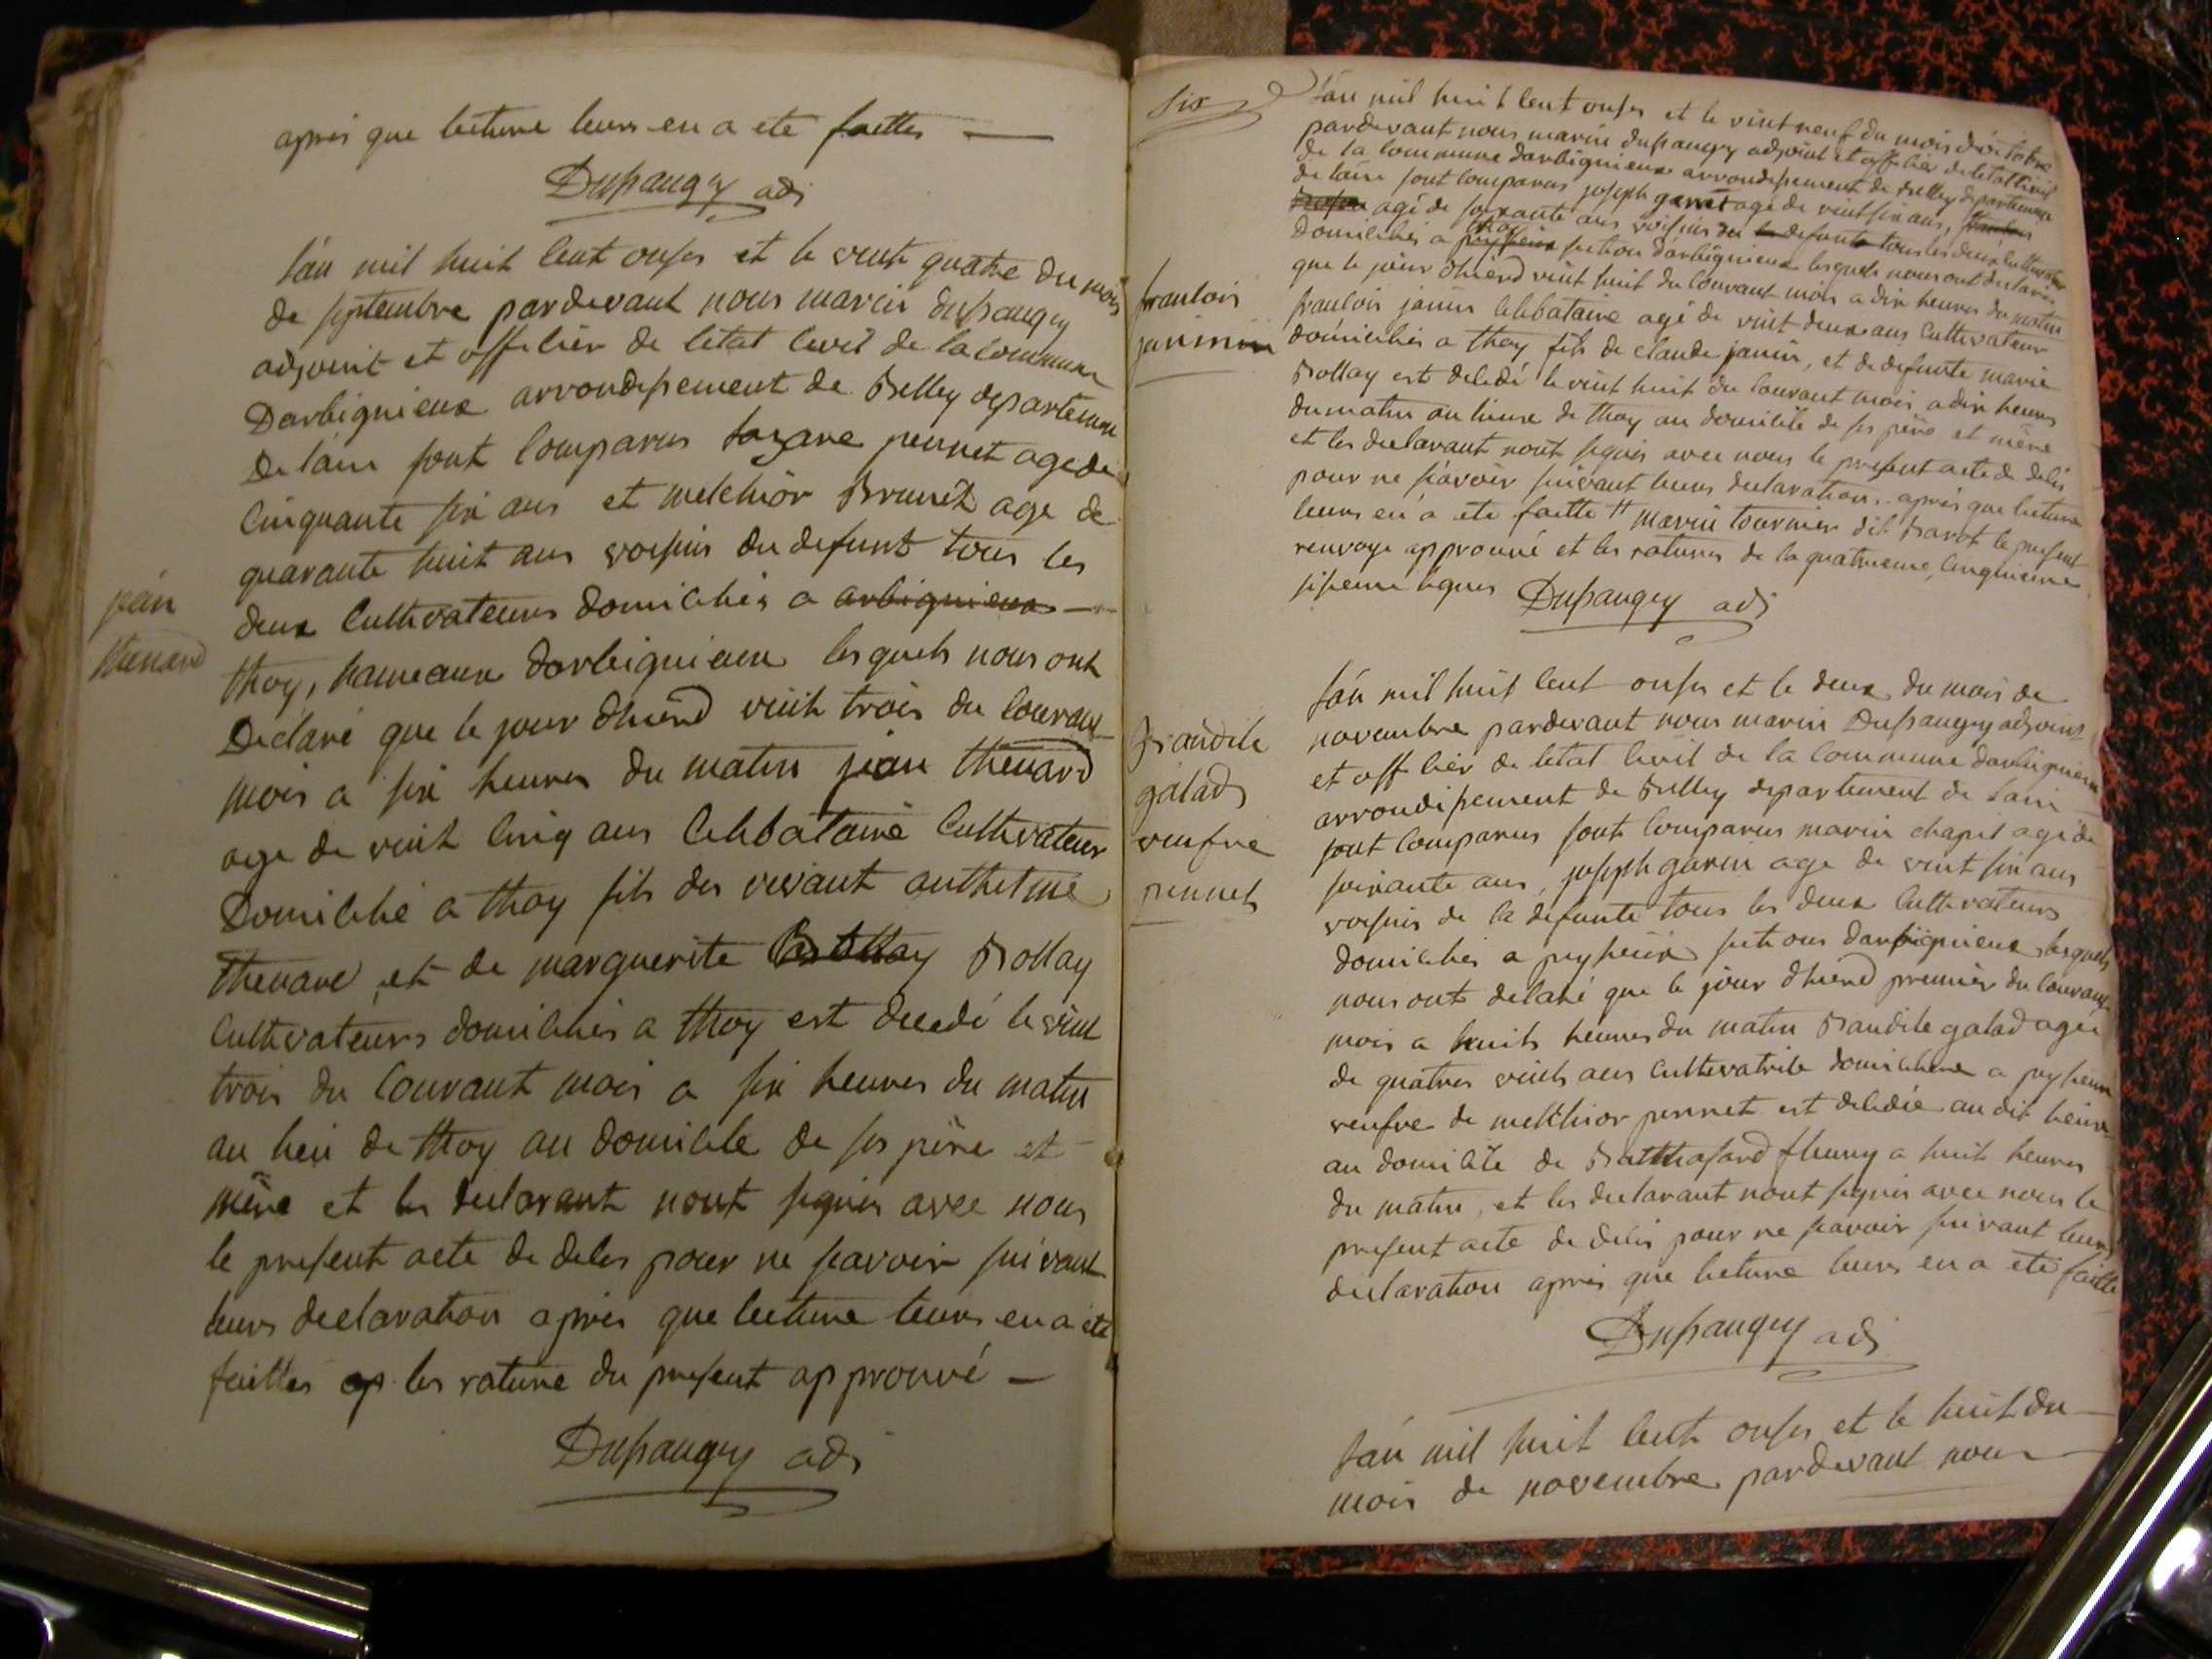 apres que lecture leurs en a ete faittes —
Dupaugey adj
jean
thenard
l'an mil huit cent onses et le vint quatre du mois
de septembre pardevant nous marin dupaugey
adjoint et officier de letat civil de la commune
Darbignieux arrondissement de Belley departement
De lain sont comparus lazare pennet age de
cinquante six ans et melchior Brunet age de
quarante huit ans voisins du defunt tous les
deux cultivateurs domicilies a arbignieux —
thoy, hameaux darbignieux lesquels nous ont
Declaré que le jour dhierd vint trois du courant
mois a six heures du matin jean thenard
age de vint cinq ans celibataire cultivateur
Domicilié a thoy fils des vivant anthelme
thenard et de marguerite Bollay
cultivateurs domicilies a thoy est decedé le vint
trois du courant mois a six heures du matin
au lieu de thoy au domicile de ses père et
mère et les declarant nont signes avec nous
le present acte de deces pour ne savoir suivant
leurs declaration apres que lecture leurs en a ete
faittes les rature du present approuvé —
Dupaugey adj
six
francois
janin
l'an mil huit cent onses et le vint neuf du mois d'octobre
pardevant nous marin dupaugey adjoint et officier de letat civil
de la commune darbignieux arrondissement de Belley departement
de lain sont comparus joseph age de vint six ans,
agé de soixante ans voisins du defunt tous les deux cultivateurs
Domicilies a section darbignieux lesquels nous ont declarés
que le jour dhierd vint huit du courant mois a dix heures du matin
francois janin celibataire agé de vint deux ans cultivateur
domicilies a thoy fils de claude janin, et de defunte marie
Bollay est decedé le vint huit du courant mois a dix heures
du matin au lieux de thoy au domicile de ses père et mère
et les declarant nont signes avec nous le present acte de deces
pour ne s'avoir suivant leurs declaration. après que lecture
leurs en a ete faitte # marin tournier dit Barot le present
renvoye approuvé et les ratures de la quatrieme, cinquieme
sixieme lignes Dupaugey adj
Bandile
galad
veufve
pennet
l'an mil huit cent onses et le deux du mois de
novembre pardevant nous marin Dupaugey adjoint
et officier de letat civil de la commune darbignieux
arrondissement de Belley departement de lain
sont comparus sont comparus marin chapit agé de
soixante ans, joseph garin age de vint six ans
voisins de la defunte tous les deux cultivateurs
domicilies a peyzieux sections darbignieux lesquels
nous ont declaré que le jour dhierd premier du courant
mois a huits heures du matin Bandile galad agee
de quatres vints ans cultivatrice domicilièe a peyzieux
veufve de melchior pennet est decedée au dit lieux
au domicile de Balthasard fleury a huit heures
du matin, et les declarant nont signes avec nous le
present acte de deces pour ne savoir suivant leurs
declaration apres que lecture leurs en a ete faitte
Dupaugey adj
l'an mil huit cent onses et le huit du
mois de novembre pardevant nous